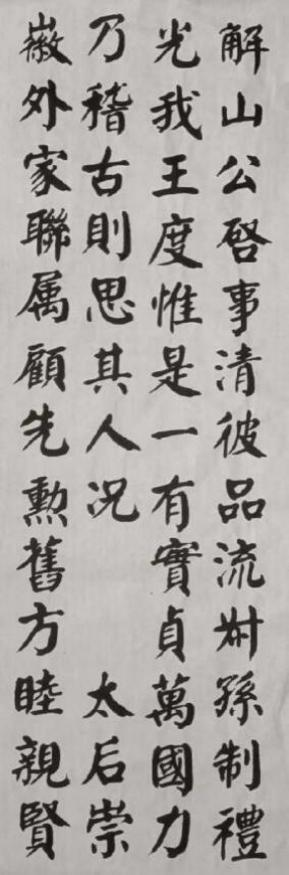 解山公啓事清彼品流叔孫制禮
光我王度惟是一有實貞萬國力
乃稽古則思其人况　太后崇
徽外家聯属顧先勳舊方睦親賢